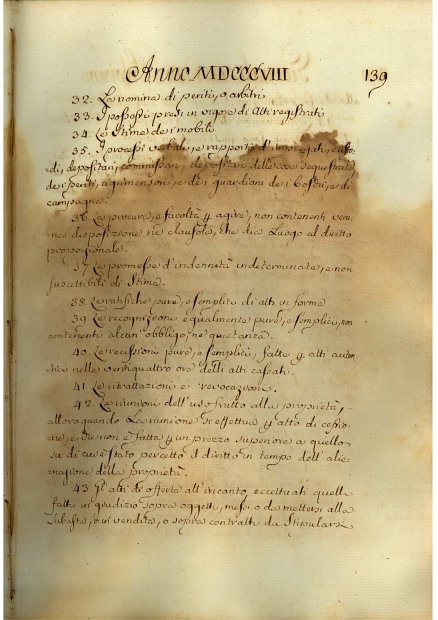 Anno MDCCCVIII 139
32. La nomina di periti, o arbitri
33. I possessi presi in vigore di Atti registrati
34. Le Stime de i mobili
35. I processi verbali, e rapporti d'impiegati, custo-
di, depositarj, commissarj, depositarj delle cose sequestrate,
de i periti, agrimensori, e de i guardiani de i boschi, e di
campagna.
36. Le procure, e facoltà di agire, non contenenti veru-
na disposizione nè clausola, che dia Luogo al diritto
proporzionale.
37. Le promesse d'indennità indeterminate, e non
suscettibili di Stima.
38. Le ratifiche pure, e semplici di atti in forma
39. Le recognizioni equalmente pure, e semplici, non
contenenti alcun obbligo, ne quietanza.
40. Le rescissioni pure, e semplici, fatte per atti auten
tici nelle ventiquattro ore delli atti cassati.
41. Le ritrattazioni e revocazioni.
42. Le riunioni dell'usofrutto alla proprietà,
allora quando La riunione si effettua per atto di cessio-
ne, e Se non è fatta per un prezzo superiore a quello
su di cui è stato percetto il diritto in tempo dell'alie-
nazione della proprietà.
43. Gli atti de offerta all'incanto, eccettuati quelli
fatti in giudizio sopra oggetti, messi o da mettersi alla
Subasta, o in vendita, o sopra contratti da Stipularsi